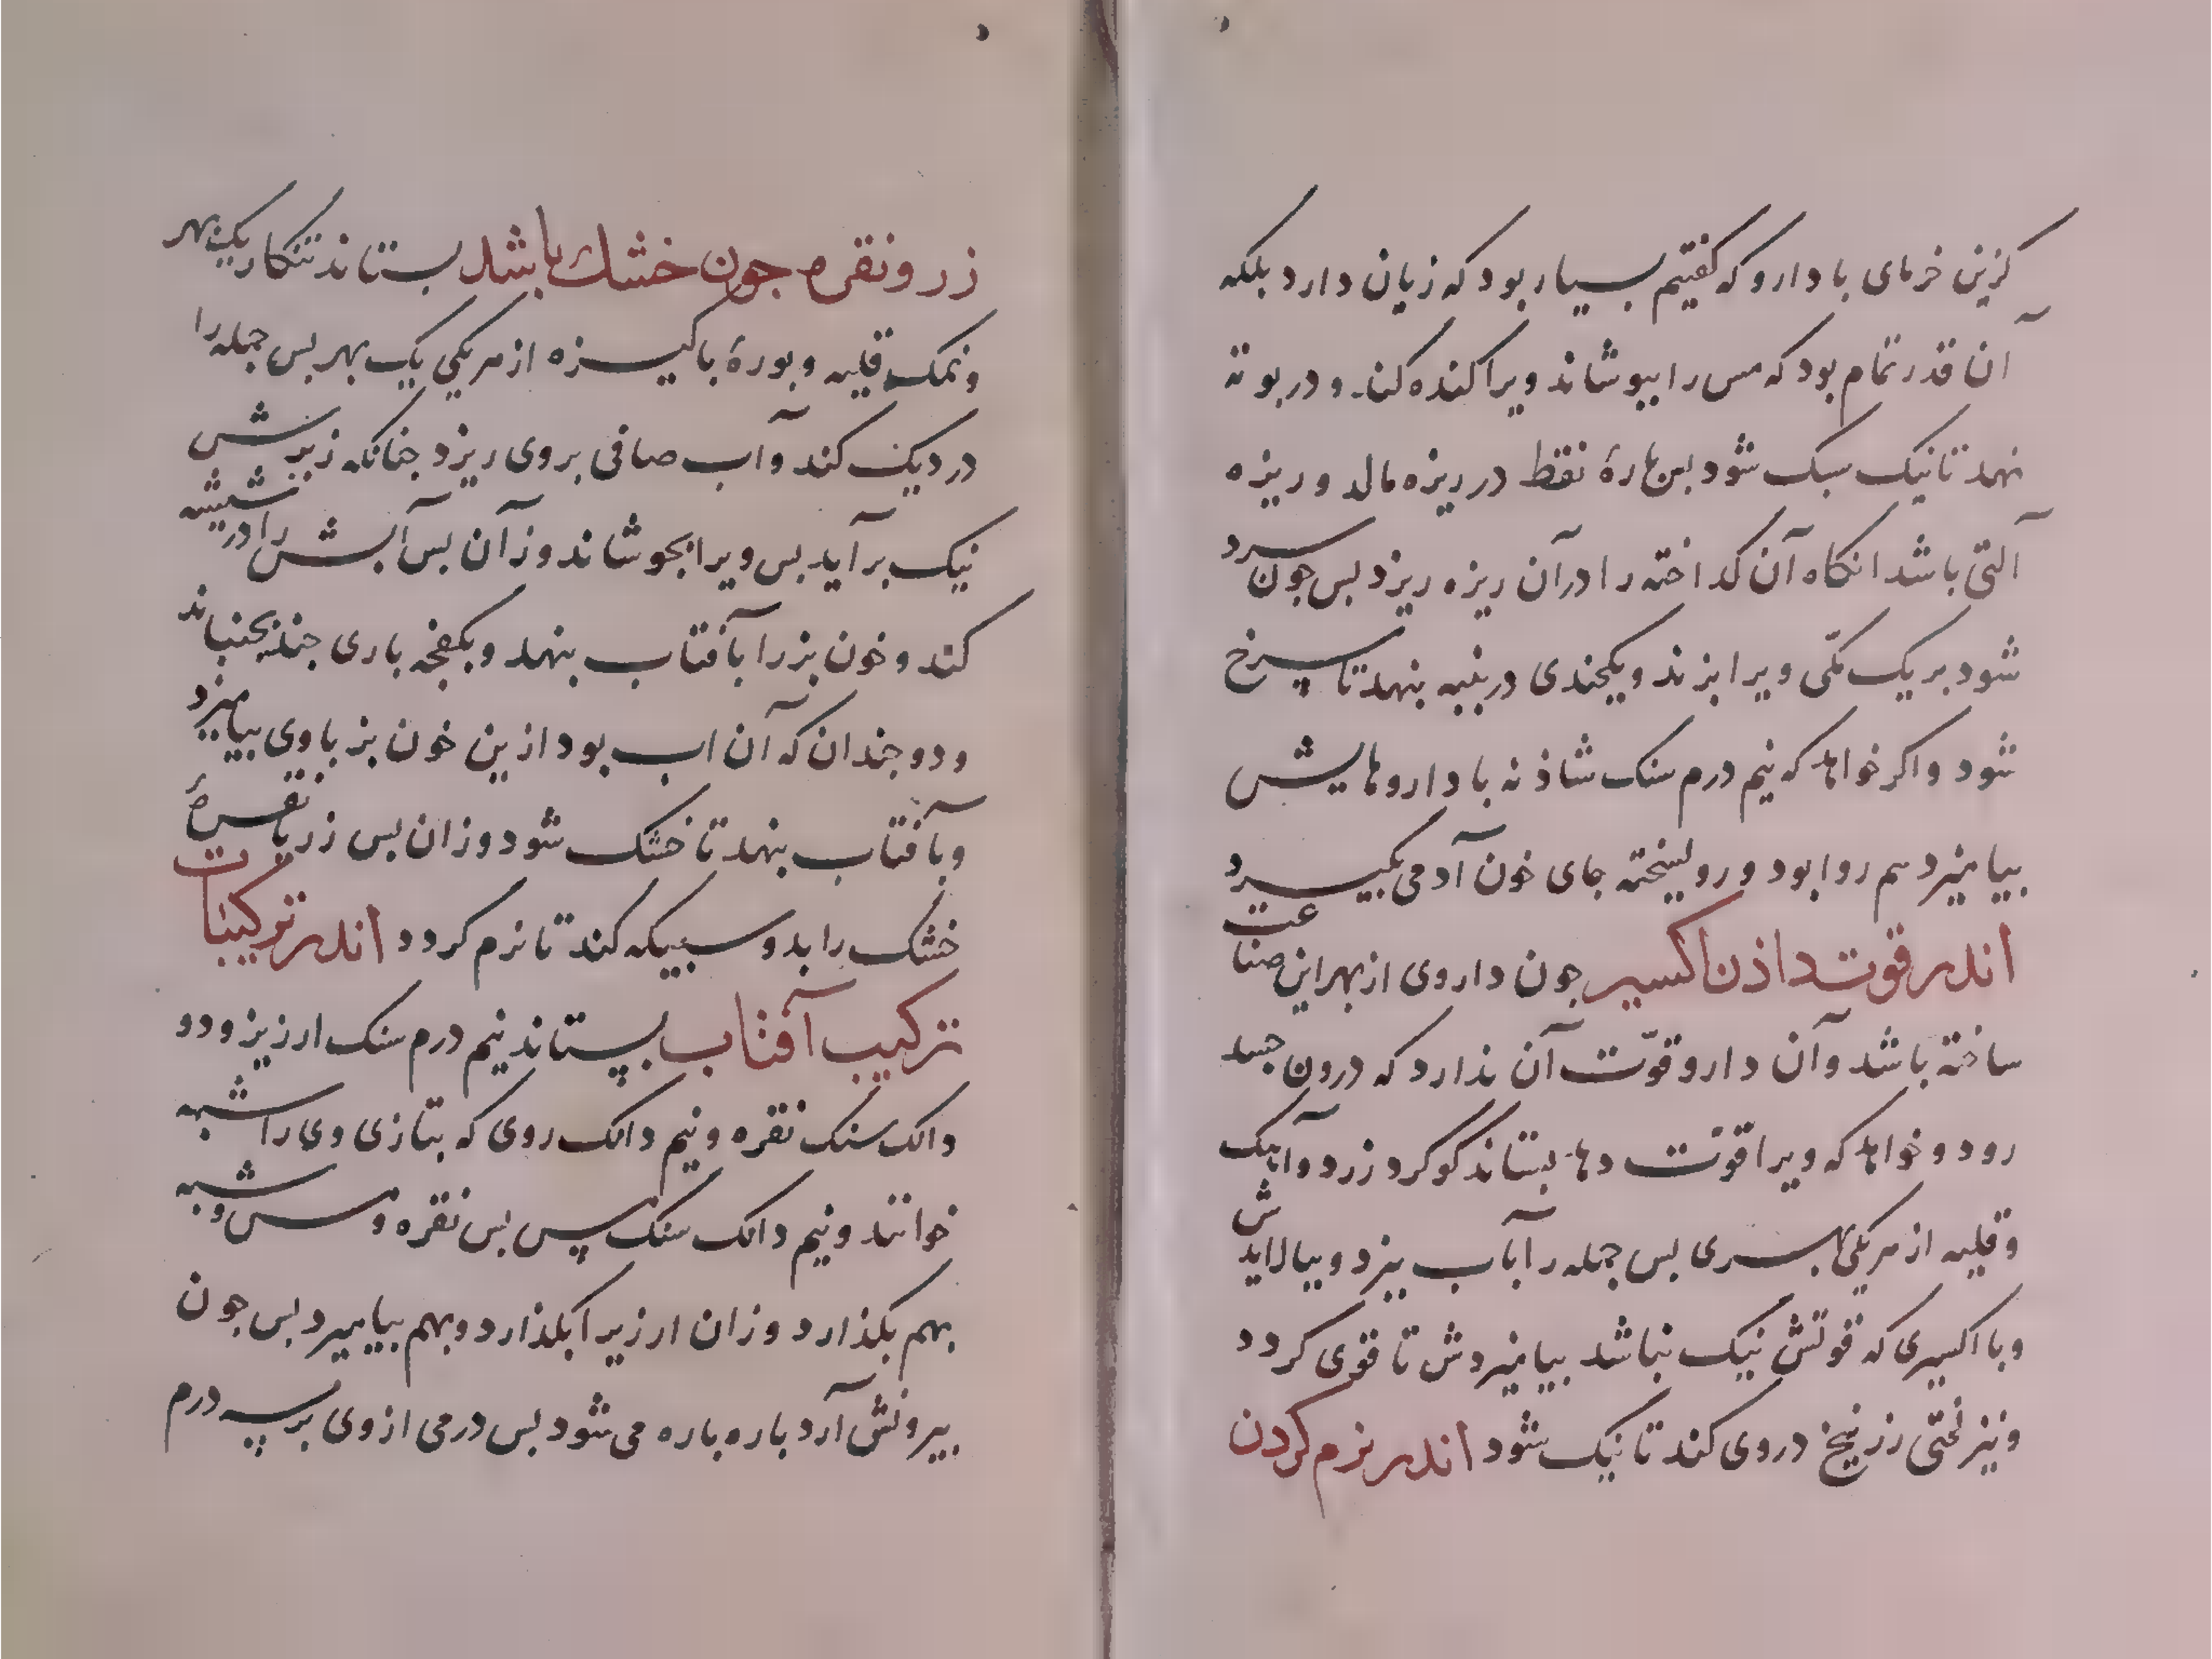 کزین خرمای با دارو که کفتیم بسیار بود که زیان دارد بلکه
آن قدر تمام بود که مس را ببوشاند ویرا کنده کند و در بوته
نهد تا نیک سبک شود بس بارهٔ نفط در ریزه مالد و ریزه
آلتی باشد انکاه آن کداخته را در آن ریزه ریزد بس جون سرد
شود بر یک ویرا بزند و یکجندی در بنبه بنهد تا سرخ
شود واکر خواهد که نیم درم سنک شاذنه با داروهایش
بیامیزد هم روا بود و روسختە جای خون آدمی بکیرد
اندر قوت داذن اکسیر جون داروی از بهر این صناعت
ساخته باشد وآن دارو قوّت آن ندارد که درون جسد
رود و خواهد که ویرا قوّت دهد بستاند کوکرد زرد وآهک
وقلیه از هر یکی بسری بس جمله را بآب ببزد و ببالایدش
وبا اکسیری که قوتش نیک نباشد بیامیزدش تا قوی کردد
ونیز لختی زرنیخ دروی کند تا نیک شود اندر نرم کردن
زر ونقره جون خشك باشد بستاند تنکار یک بهر
ونمک قلیه وبورهٔ باکیزه از هر یکی یک بهر بس جمله را
در دیک کند وآب صافی بروی ریزد جنانکه زبرش
نیک برآید بس ویرا بجوشاند وزآن بس آبش را در شیشه
کند وخون بز را بآفتاب بنهد وبکفجه باری جند بجنباند
ودو جندان که آن اب بود ازین خون بز باوی بیامیزد
وبآفتاب بنهد تا خشک شود وزان بس زر یا نقرهٔ
خشک را بدو سبیکه کند تا نرم کردد اندر ترکیبات
ترکیب آفتاب بستاند نیم درم سنک ارزیز ودو
دانک سنک نقره ونیم دانک روی که بتازی وی را شبه
خوانند ونیم دانک سنک مس بس نقره ومس وشبه
بهم بکذارد وزان ارزیر ابکذارد وبهم بیامیزد بس جون
بیرونش آرد باره باره می شود بس درمی از وی بر سه درم